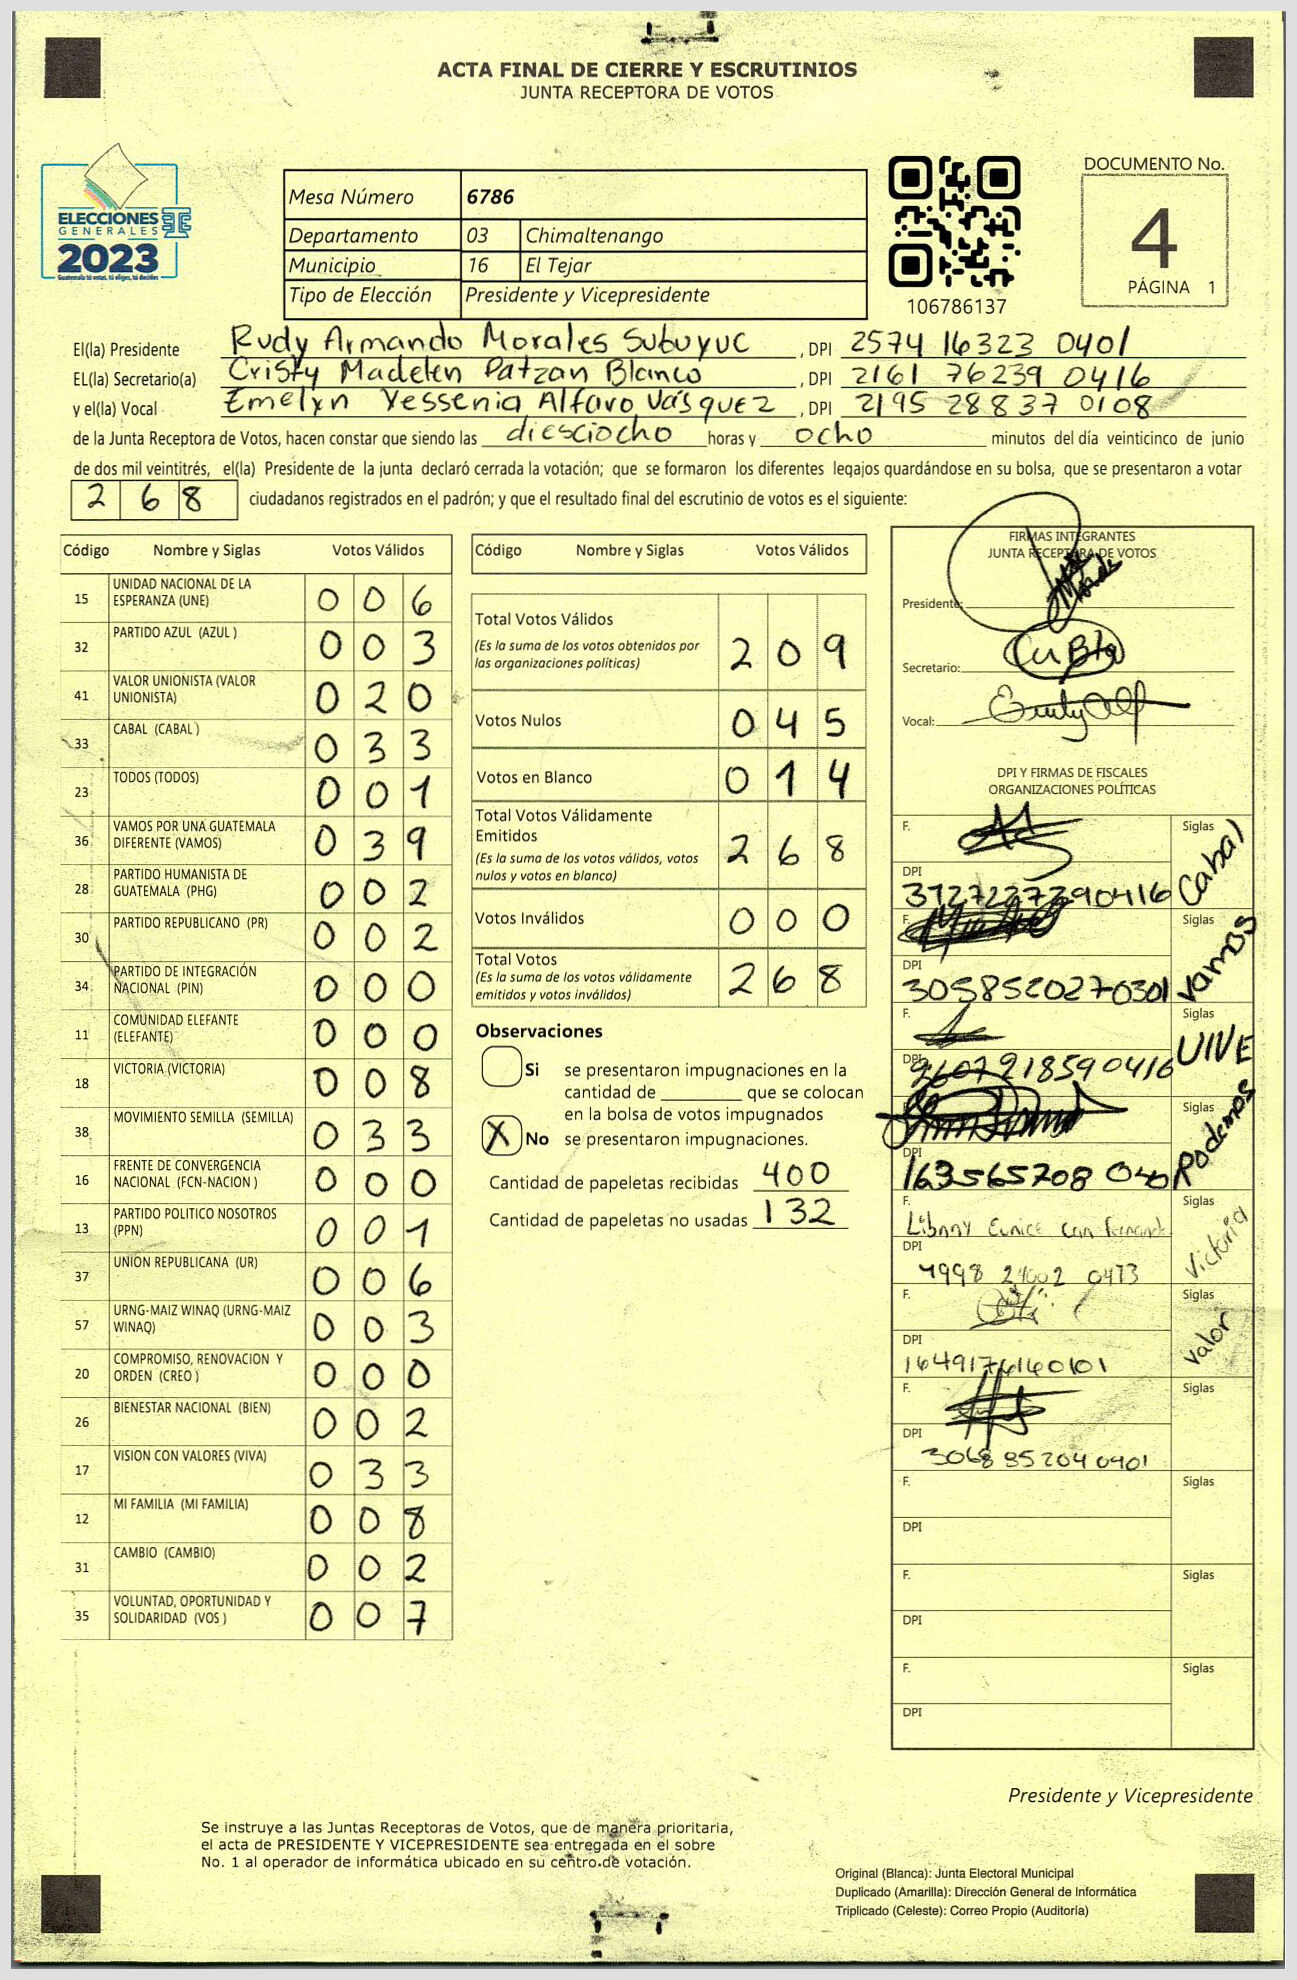 ACTA FINAL DE CIERRE Y ESCRUTINIOS
JUNTA RECEPTORA DE VOTOS
ELECCIONES
GENERALES
2023
Mesa Número 6786
Departamento 03 Chimaltenango
Municipio 16 El Tejar
Tipo de Elección Presidente y Vicepresidente
106786137
DOCUMENTO No.
4
PÁGINA 1
El(la) Presidente Rudy Armando Morales Subuyuc , DPI 2574 16323 0401
EL(la) Secretario(a) Cristy Madelen Patzan Blanco , DPI 2161 76239 0416
y el(la) Vocal Emelyn Yessenia Alfaro Vásquez , DPI 2195 28837 0108
de la Junta Receptora de Votos, hacen constar que siendo las diesciocho horas y ocho minutos del día veinticinco de junio
de dos mil veintitrés, el(la) Presidente de la junta declaró cerrada la votación; que se formaron los diferentes legajos quardándose en su bolsa, que se presentaron a votar
268 ciudadanos registrados en el padrón; y que el resultado final del escrutinio de votos es el siguiente:
Código Nombre y Siglas Votos Válidos
15 UNIDAD NACIONAL DE LA ESPERANZA (UNE) 006
32 PARTIDO AZUL (AZUL ) 003
41 VALOR UNIONISTA (VALOR UNIONISTA) 020
33 CABAL (CABAL ) 033
23 TODOS (TODOS) 001
36 VAMOS POR UNA GUATEMALA DIFERENTE (VAMOS) 039
28 PARTIDO HUMANISTA DE GUATEMALA (PHG) 002
30 PARTIDO REPUBLICANO (PR) 002
34 PARTIDO DE INTEGRACIÓN NACIONAL (PIN) 000
11 COMUNIDAD ELEFANTE (ELEFANTE) 000
18 VICTORIA (VICTORIA) 008
38 MOVIMIENTO SEMILLA (SEMILLA) 033
16 FRENTE DE CONVERGENCIA NACIONAL (FCN-NACION ) 000
13 PARTIDO POLITICO NOSOTROS (PPN) 001
37 UNION REPUBLICANA (UR) 006
57 URNG-MAIZ WINAQ (URNG-MAIZ WINAQ) 003
20 COMPROMISO, RENOVACION Y ORDEN (CREO ) 000
26 BIENESTAR NACIONAL (BIEN) 002
17 VISION CON VALORES (VIVA) 033
12 MI FAMILIA (MI FAMILIA) 008
31 CAMBIO (CAMBIO) 002
35 VOLUNTAD, OPORTUNIDAD Y SOLIDARIDAD (VOS ) 007
Código Nombre y Siglas Votos Válidos
Total Votos Válidos 209
(Es la suma de los votos obtenidos por
las organizaciones políticas)
Votos Nulos 045
Votos en Blanco 014
Total Votos Válidamente
Emitidos 268
(Es la suma de los votos válidos, votos
nulos y votos en blanco)
Votos Inválidos 000
Total Votos 268
(Es la suma de los votos válidamente
emitidos y votos inválidos)
Observaciones
Si se presentaron impugnaciones en la
cantidad de ________ que se colocan
en la bolsa de votos impugnados
X No se presentaron impugnaciones.
Cantidad de papeletas recibidas 400
Cantidad de papeletas no usadas 132
FIRMAS INTEGRANTES
JUNTA RECEPTORA DE VOTOS
Presidente:
Secretario:
Vocal:
DPI Y FIRMAS DE FISCALES
ORGANIZACIONES POLÍTICAS
F. Siglas Cabal
DPI
F. Siglas Vamos
DPI 3058520270301
F. Siglas
DPI 2607218590416
F. Siglas Podemos
DPI
F. Libnny Eunice Siglas Victoria
DPI
F. Siglas Valor
DPI 1649176160101
F. Siglas
DPI
F. Siglas
DPI
F. Siglas
DPI
F. Siglas
DPI
Presidente y Vicepresidente
Se instruye a las Juntas Receptoras de Votos, que de manera prioritaria,
el acta de PRESIDENTE Y VICEPRESIDENTE sea entregada en el sobre
No. 1 al operador de informática ubicado en su centro de votación.
Original (Blanca): Junta Electoral Municipal
Duplicado (Amarilla): Dirección General de Informática
Triplicado (Celeste): Correo Propio (Auditoría)